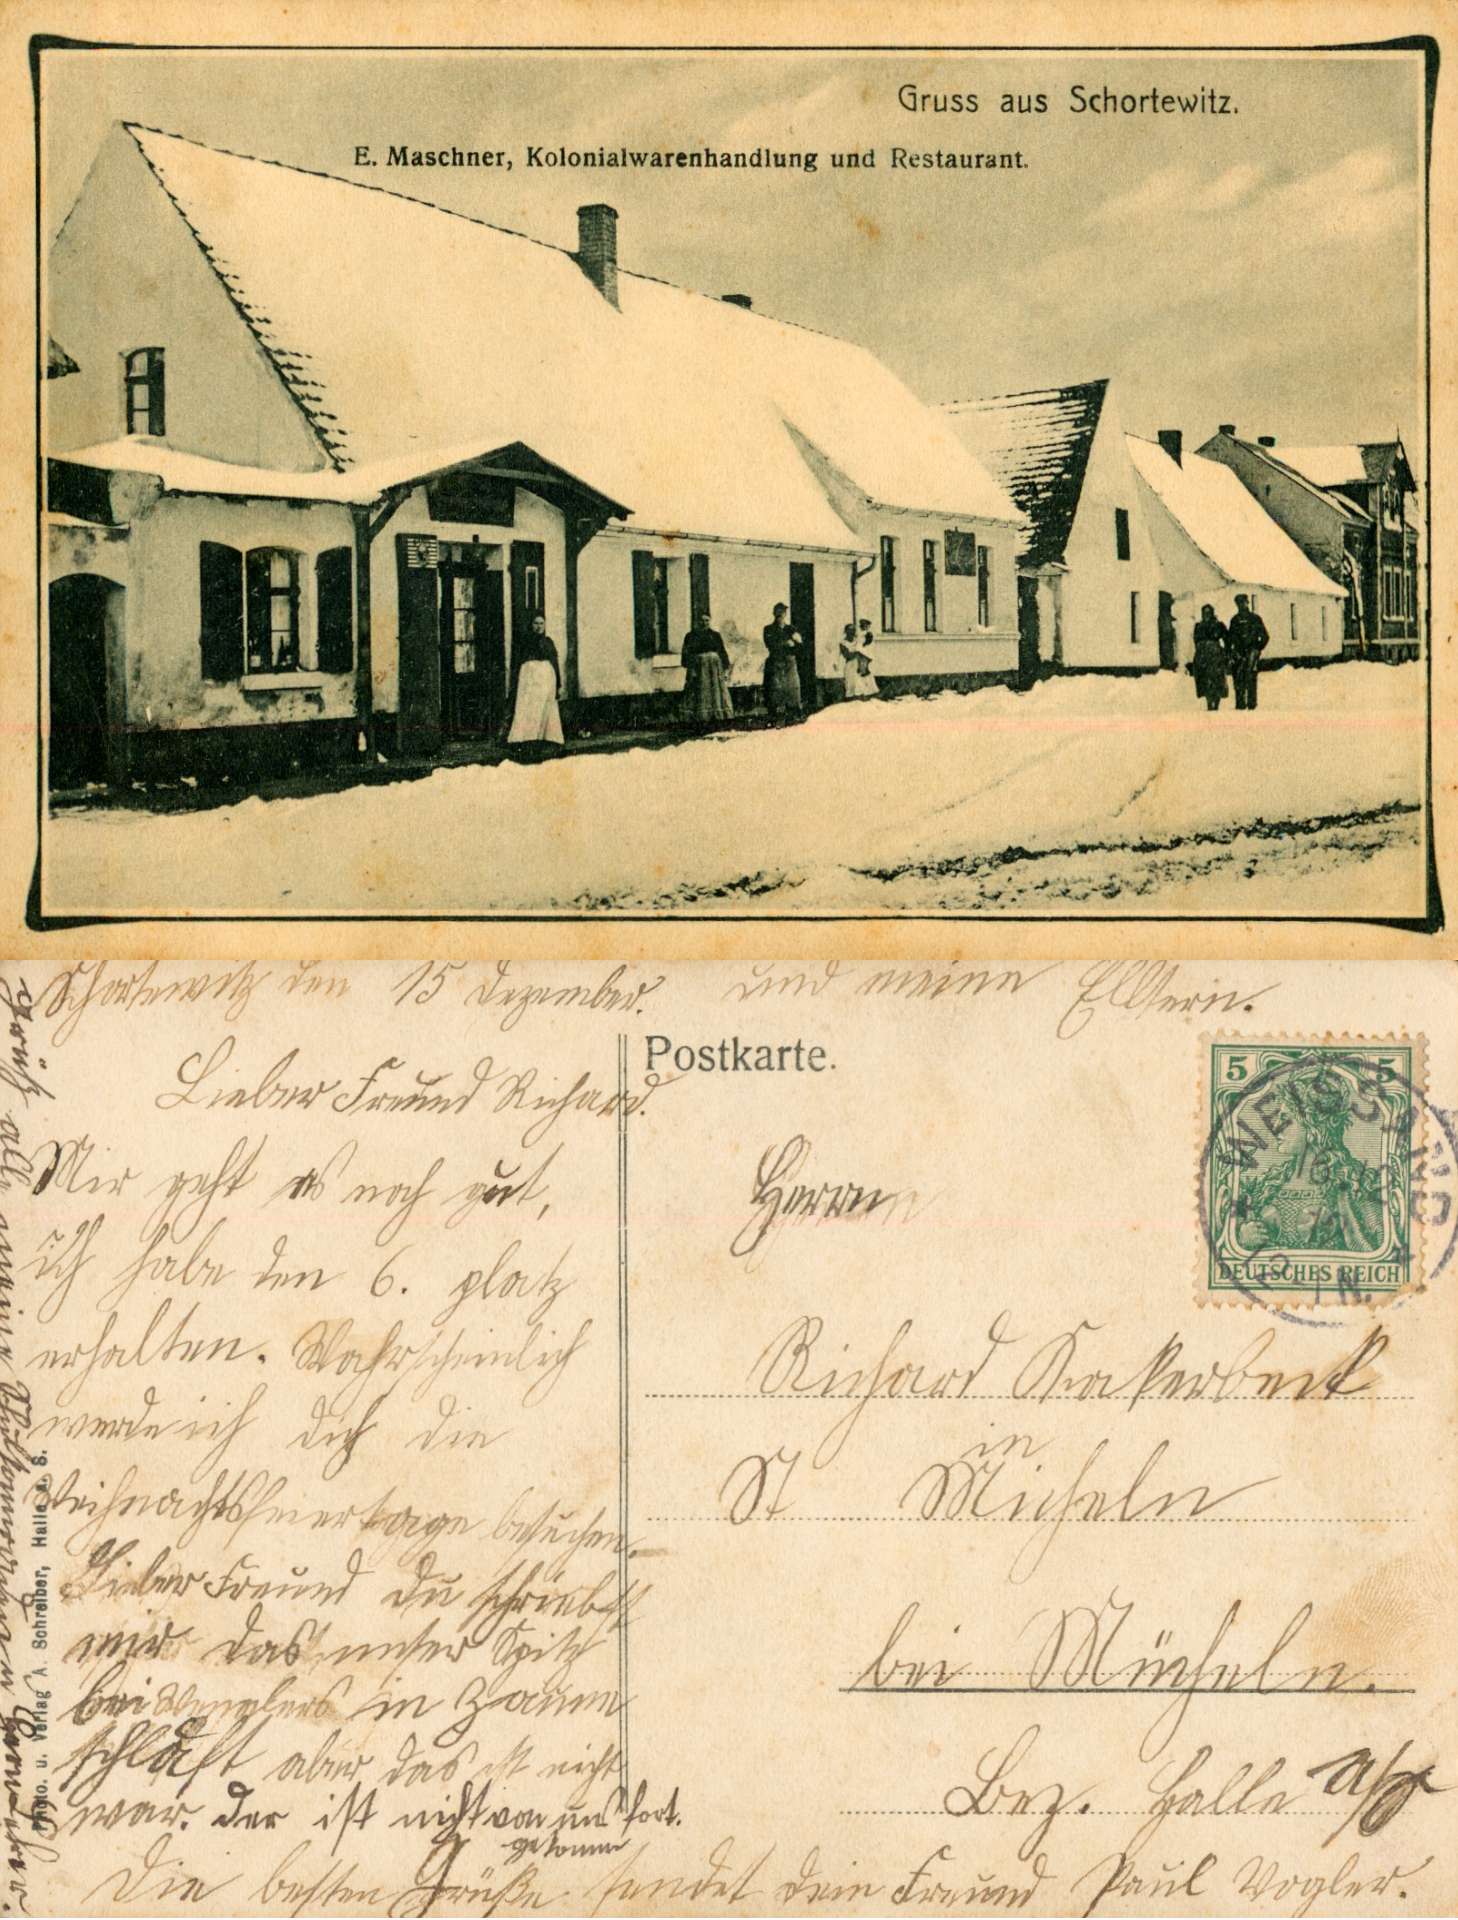 Gruss aus Schortewitz.
E. Maschner, Kolonialwarenhandlung und Restaurant.
Schortewitz den 15 Dezember.
Lieber Freund Richard.
Mir geht es noch gut,
ich habe den 6. platz
erhalten. Wahrscheinlich
werde ich dich die
Weihnachtsfeiertage besuchen.
Lieber Freund du schriebst
mir das unser Spitz
bei in Zaune
schläft aber das ist nicht
war. der ist nicht von uns fort.
gekomm
Die besten Grüße sendet dein Freund Paul Vogler.
und meine Elltern.
Grüß alle meine
Photo. u. Verlag A. Schreiber, Halle a. S.
Postkarte.
5 5
DEUTSCHES REICH
WEISSAND
16.12
Herrn
Richard Kakerbeck
in
St Micheln
bei Mücheln.
Bez. Halle a/S